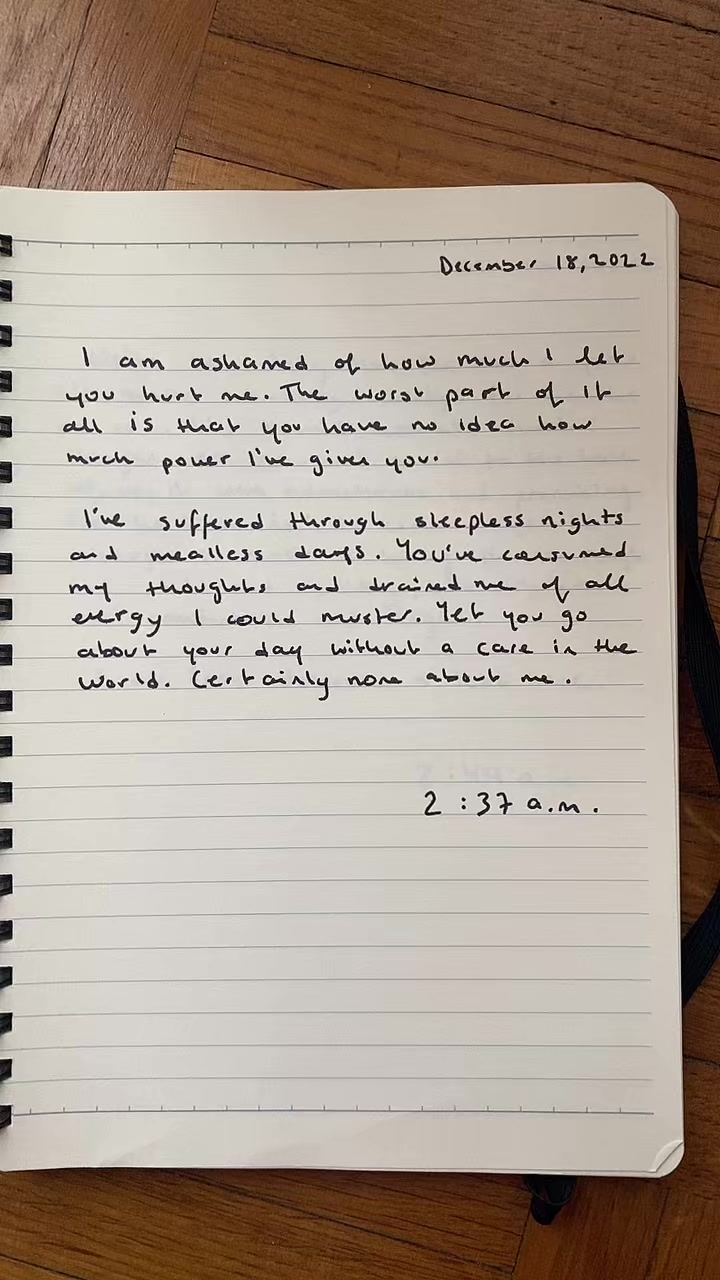 December 18, 2022
I am ashamed of how much I let
you hurt me. The worst part of it
all is that you have no idea how
much power I've given you.
I've suffered through sleepless nights
and mealless days. You've consumed
my thoughts and drained me of all
energy I could muster. Yet you go
about your day without a care in the
world. Certainly none about me.
2:37 a.m.